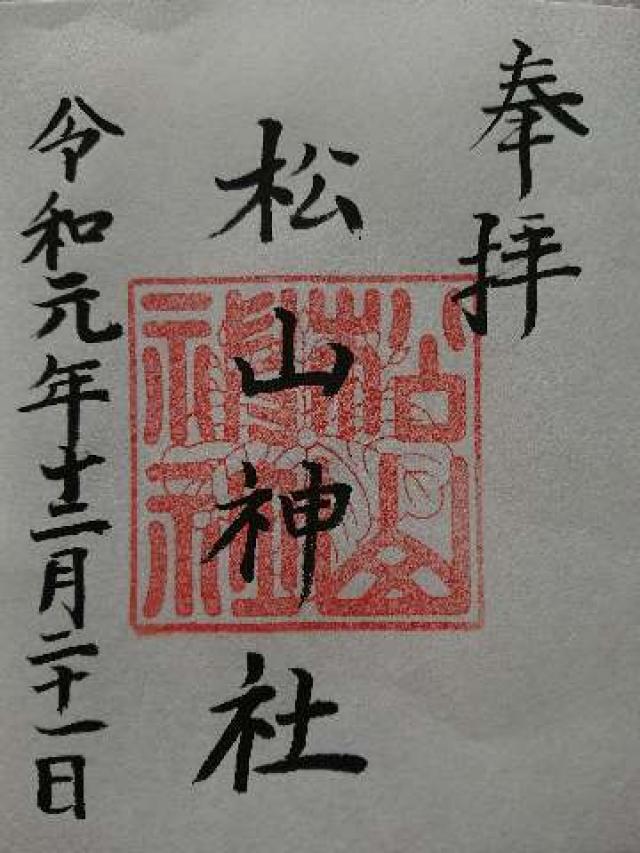 奉拝
松山神社
令和元年十二月二十一日
松山
神社